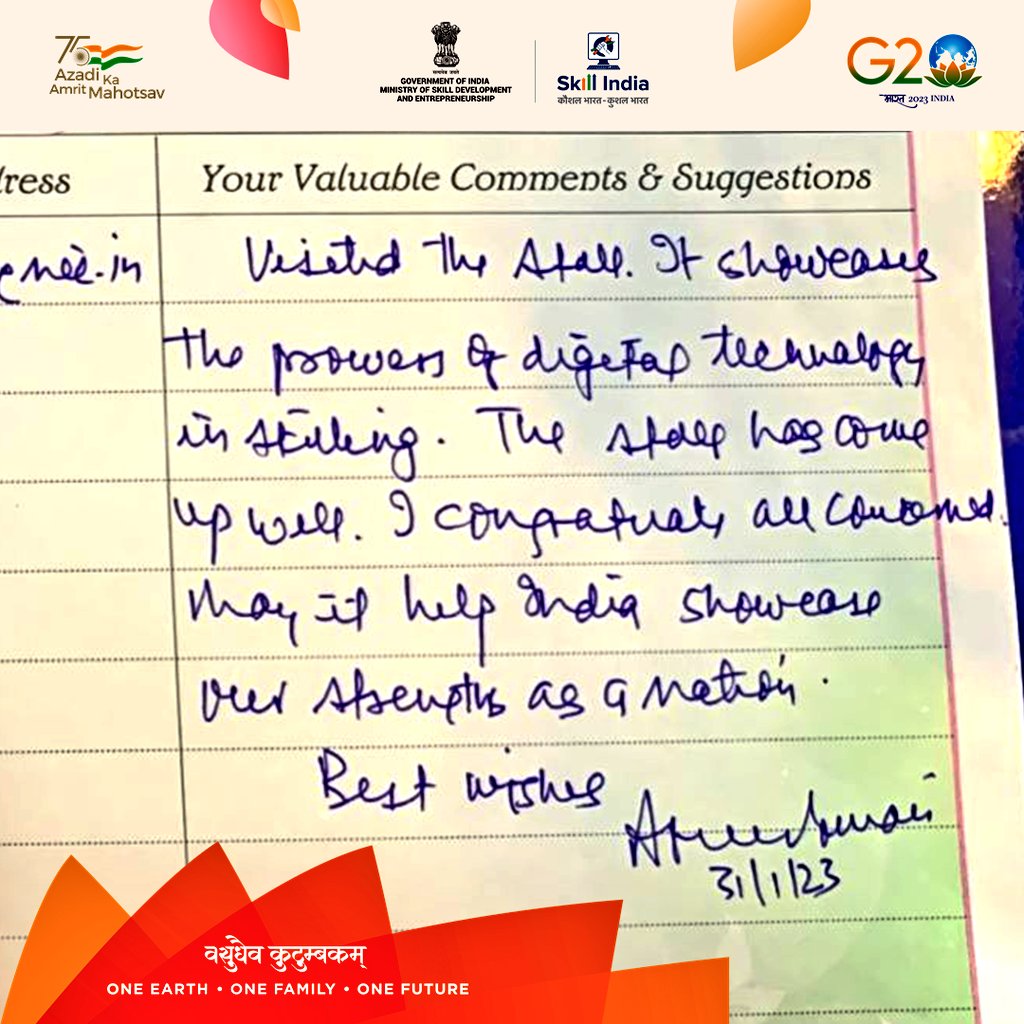 75
Azadi Ka
Amrit Mahotsav
सत्यमेव जयते
GOVERNMENT OF INDIA
MINISTRY OF SKILL DEVELOPMENT
AND ENTREPRENEURSHIP
Skill India
कौशल भारत-कुशल भारत
G20
भारत 2023 INDIA
dress
Your Valuable Comments & Suggestions
nic.in
Visited the stall. It showcases
the prowess of digital technology
in skilling. The stall has come
up well. I congratulate all concerned.
May it help India showcase
our strengths as a nation.
Best wishes
31/1/23
वसुधैव कुटुम्बकम्
ONE EARTH • ONE FAMILY • ONE FUTURE